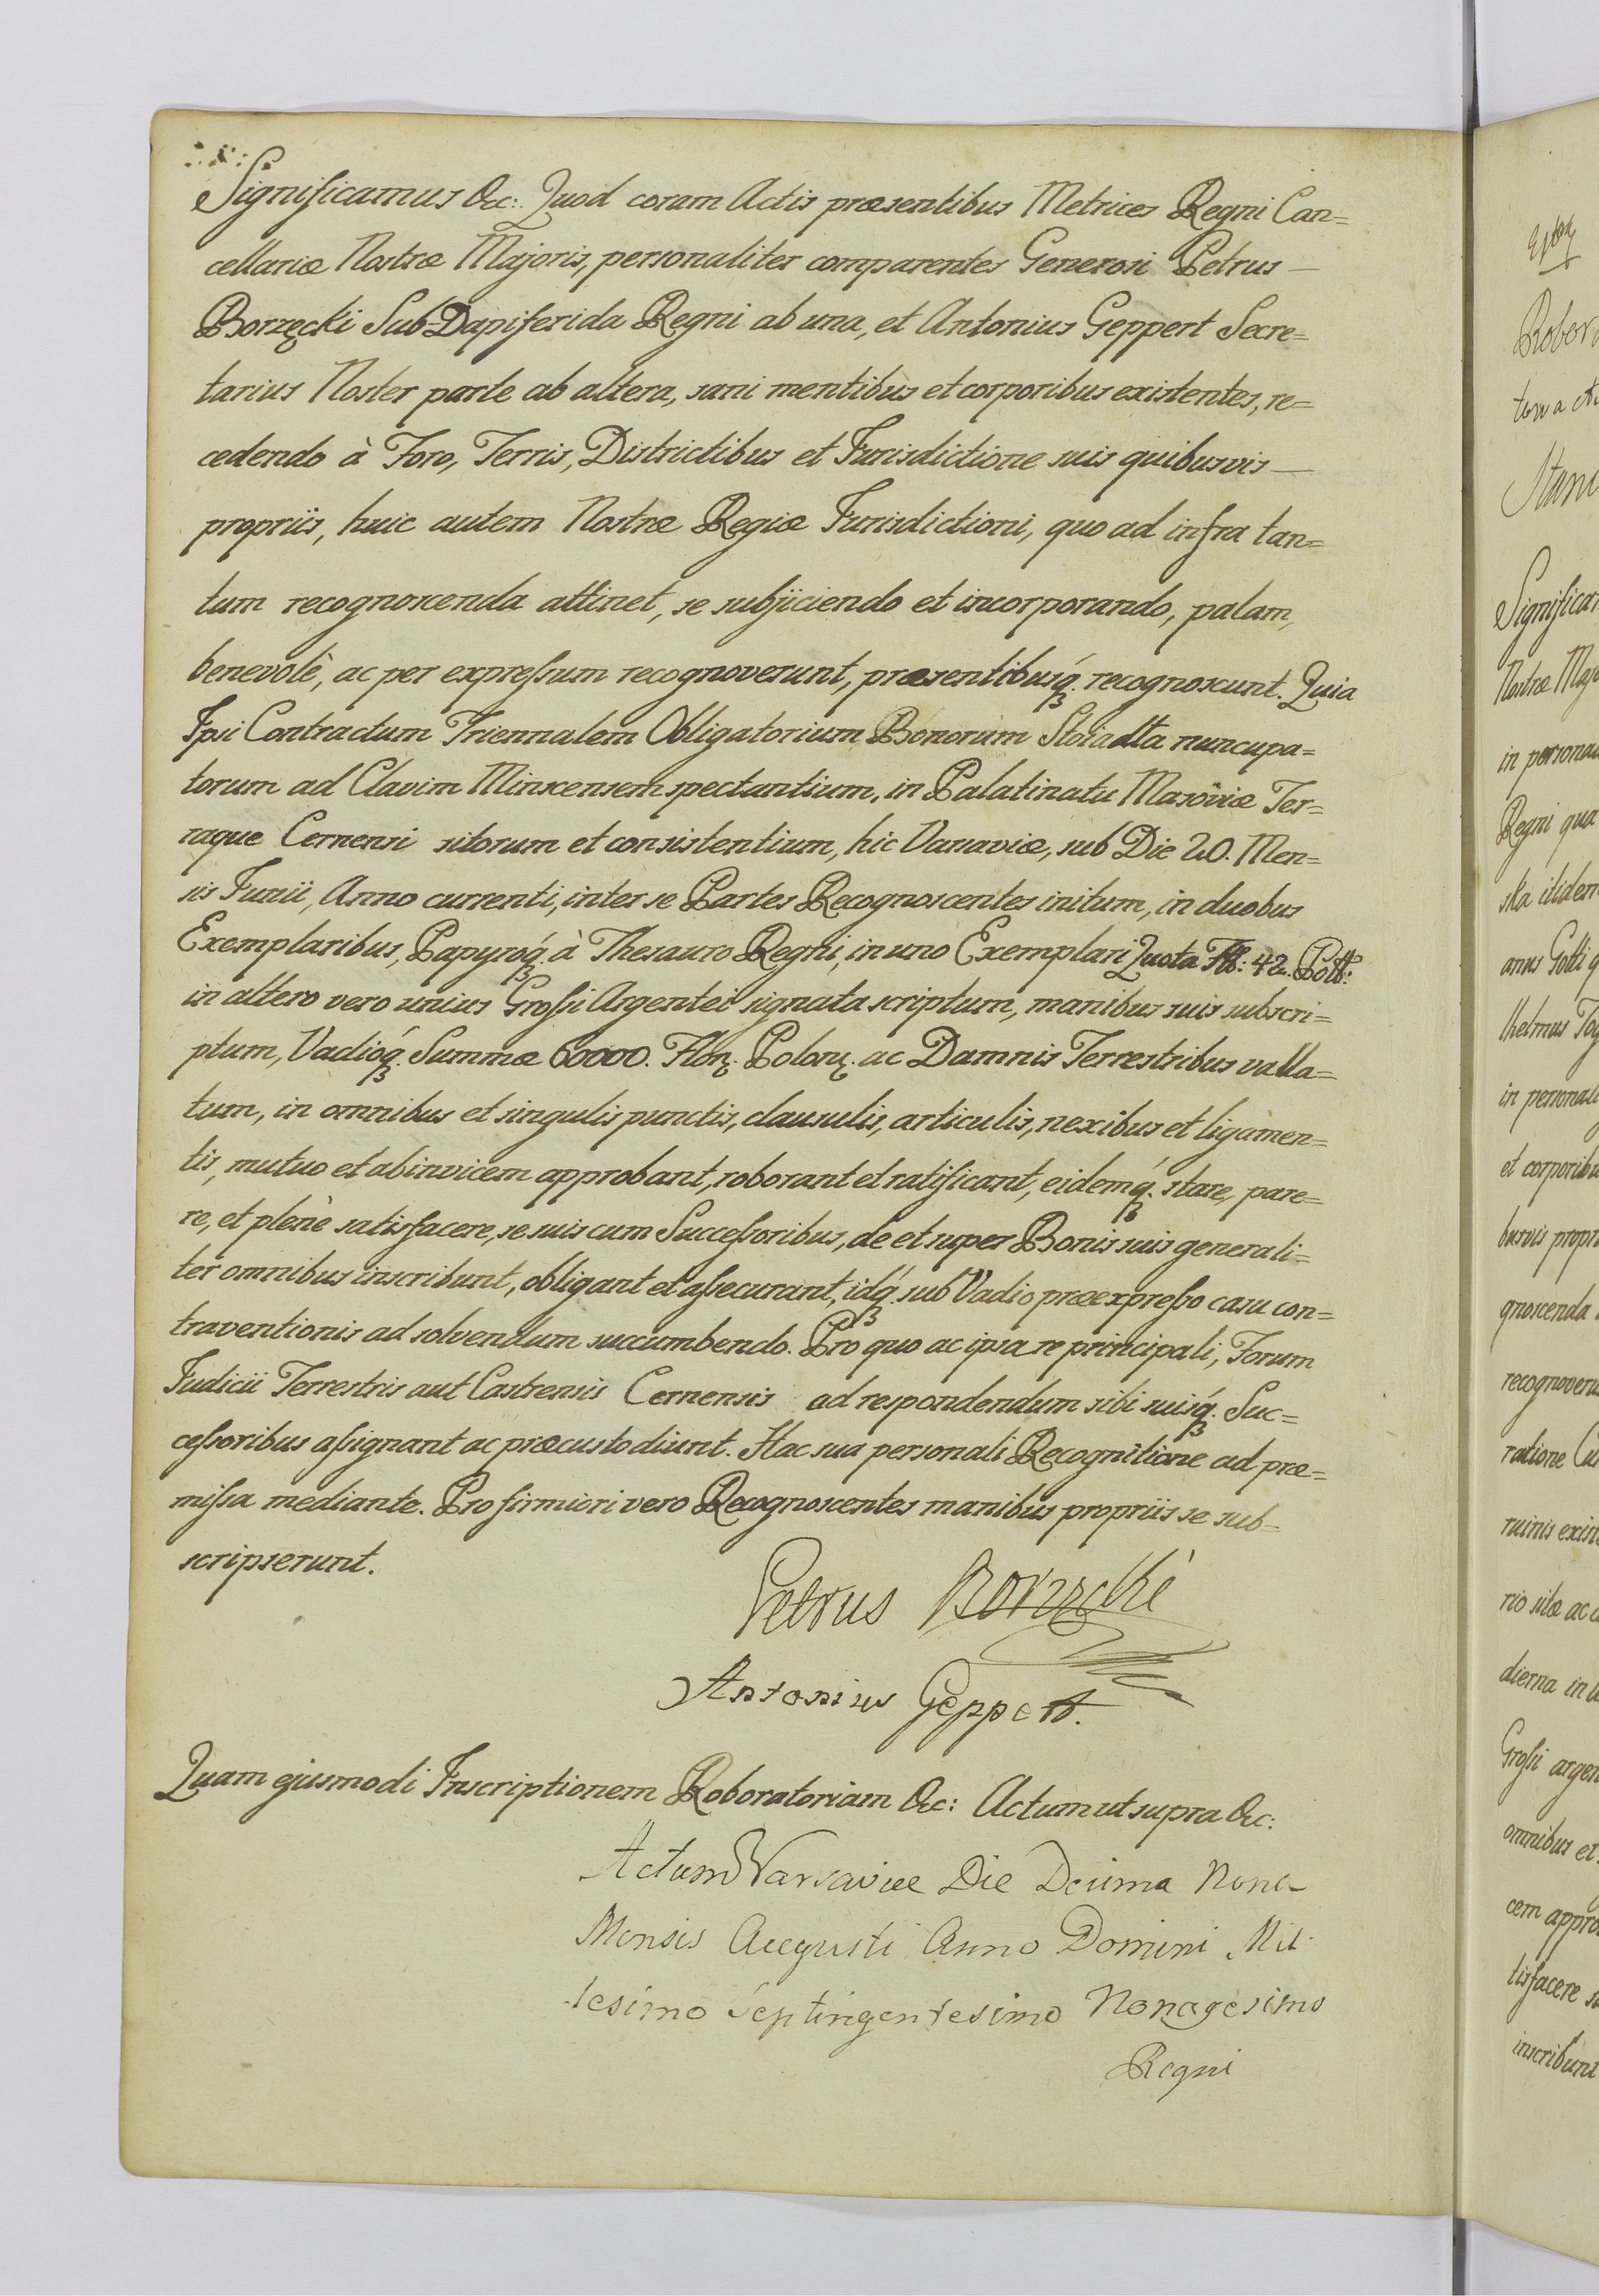 Significamus &c: Quod coram Actis præsentibus Metrices Regni Can=
cellariæ Nostræ Majoris, personaliter comparentes Generosi Petrus —
Borzęcki SubDapiferida Regni ab una, et Antonius Geppert Secre=
tarius Noster parte ab altera, sani mentibus et corporibus existentes, re=
cedendo à Foro, Terris, Districtibus et Jurisdictione suis quibusvis —
propriis, huic autem Nostræ Regiæ Jurisdictioni, quo ad infra tan=
tum recognoscenda attinet, se subjiciendo et incorporando, palam,
benevolè, ac per expressum recognoverunt, præsentibusq́ꝫ. recognoscunt. Quia
Ipsi Contractum Triennalem Obligatorium Bonorum nuncupa=
torum ad Clavim Minscensem spectantium, in Palatinatu Masoviæ Ter=
raque Cernensi sitorum et consistentium, hic Varsaviæ, sub Die 20. Men=
sis Junii, Anno currenti, inter se Partes Recognoscentes initum, in duobus
Exemplaribus, Papyroq́ꝫ. à Thesauro Regni, in uno Exemplari Quota Flß: 42. Polß:
in altero vero unius Grossi Argentei signata scriptum, manibus suis subscri=
ptum, Vadioq́ꝫ. Summæ 60000. Flor. Polon. ac Damnis Terrestribus valla=
tum, in omnibus et singulis punctis, clausulis, articulis, nexibus et ligamen=
tis, mutuo et abinvicem approbant, roborant et ratificant, eidemq́ꝫ. stare, pare=
re, et plenè satisfacere, se suis cum Successoribus, de et super Bonis suis generali=
ter omnibus inscribunt, obligant et assecurant, idq́ꝫ. sub Vadio præexpresso casu con=
traventionis ad solvendum succumbendo. Pro quo ac ipsa re principali, Forum
Judicii Terrestris aut Castrensis Cernensis ad respondendum sibi suisq́ꝫ. Suc=
cessoribus assignant ac præcustodiunt. Hac sua personali Recognitione ad præ=
missa mediante. Pro firmiori vero Recognoscentes manibus propriis se sub=
scripserunt.
Petrus Borzęcki
Antonius Geppert.
Quam ejusmodi Inscriptionem Roboratoriam &c: Actum ut supra &c:
Actum Varsaviæ Die Decima Nona
Mensis Augusti Anno Domini Mil-
lesimo Septingentesimo Nonagesimo
Regni
Robor
Significa
Nostræ Maj
in persona
Regni qua
in personal
et corporibu
busvis propr
gnoscenda
recognoveru
ratione
dierna in
Grossi argen
omnibus et
cem appro
tisfacere
inscribunt